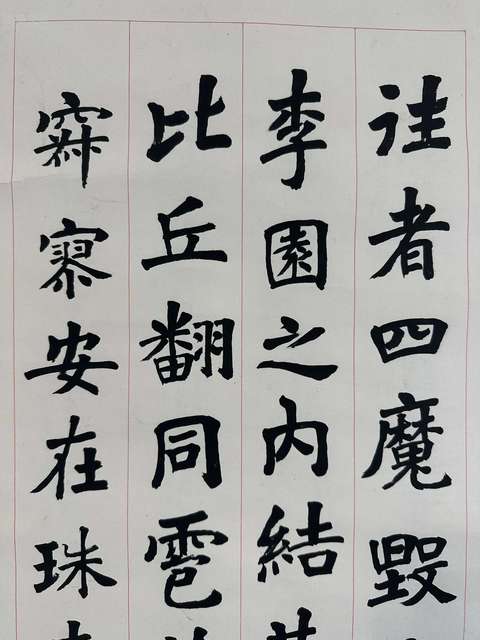 往者四魔毀
李園之内結
比丘翻同雹
寂寥安在珠